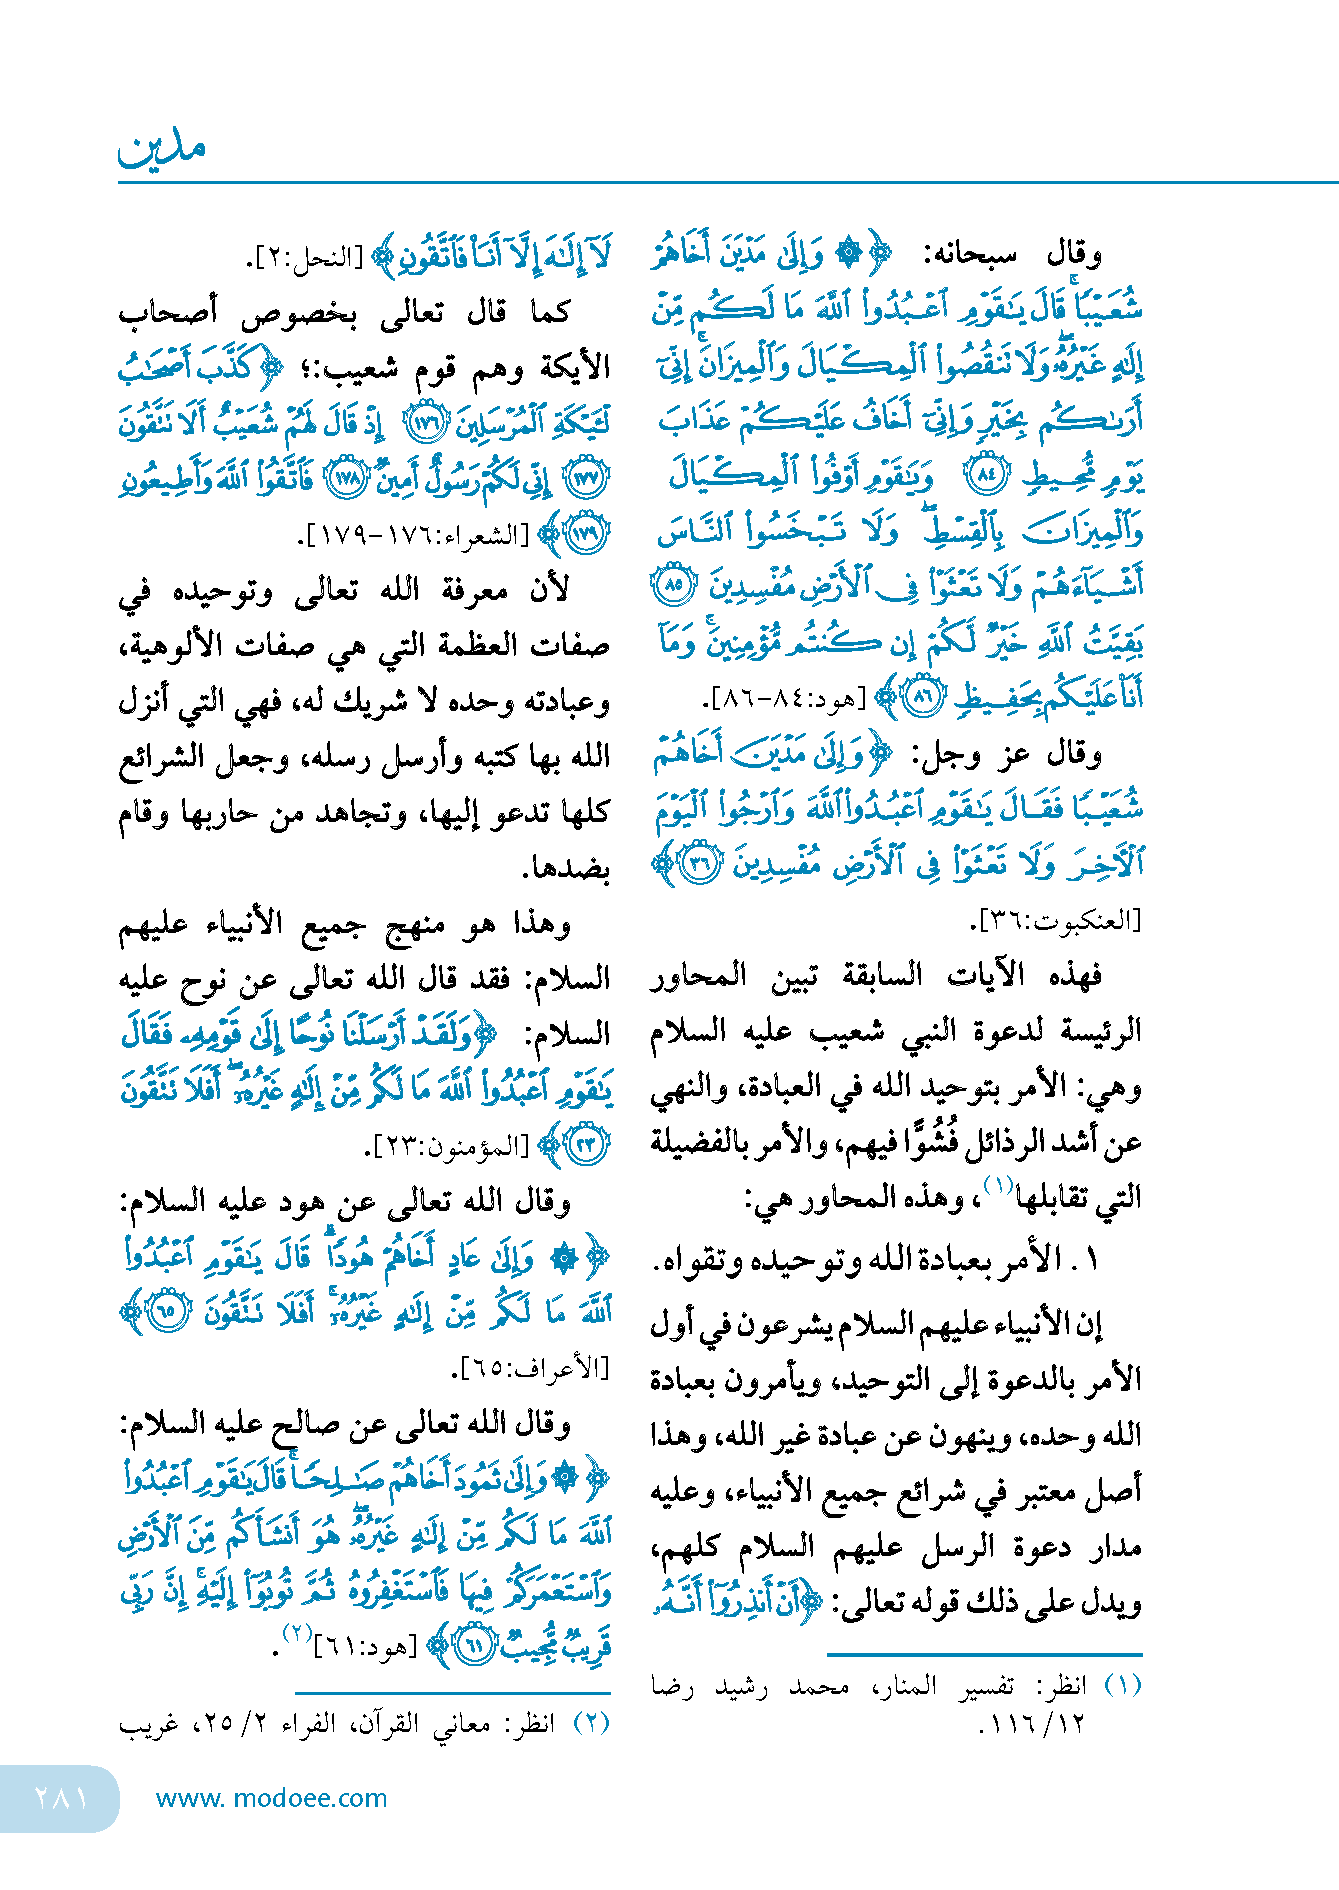 مدين
وقال سبحانه: ﴿۞ وَإِلَىٰ مَدْيَنَ أَخَاهُمْ
شُعَيْبًا ۚ قَالَ يَٰقَوْمِ ٱعْبُدُوا۟ ٱللَّهَ مَا لَكُم مِّنْ
إِلَٰهٍ غَيْرُهُۥ ۖ وَلَا تَنقُصُوا۟ ٱلْمِكْيَالَ وَٱلْمِيزَانَ ۚ إِنِّىٓ
أَرَىٰكُم بِخَيْرٍ وَإِنِّىٓ أَخَافُ عَلَيْكُمْ عَذَابَ
يَوْمٍ مُّحِيطٍ ٨٤ وَيَٰقَوْمِ أَوْفُوا۟ ٱلْمِكْيَالَ
وَٱلْمِيزَانَ بِٱلْقِسْطِ ۖ وَلَا تَبْخَسُوا۟ ٱلنَّاسَ
أَشْيَآءَهُمْ وَلَا تَعْثَوْا۟ فِى ٱلْأَرْضِ مُفْسِدِينَ ٨٥
بَقِيَّتُ ٱللَّهِ خَيْرٌ لَّكُمْ إِن كُنتُم مُّؤْمِنِينَ ۚ وَمَآ
أَنَا۠ عَلَيْكُم بِحَفِيظٍ ٨٦﴾ [هود:٨٤-٨٦].
وقال عز وجل: ﴿وَإِلَىٰ مَدْيَنَ أَخَاهُمْ
شُعَيْبًا فَقَالَ يَٰقَوْمِ ٱعْبُدُوا۟ ٱللَّهَ وَٱرْجُوا۟ ٱلْيَوْمَ
ٱلْأَخِرَ وَلَا تَعْثَوْا۟ فِى ٱلْأَرْضِ مُفْسِدِينَ ٣٦﴾
[العنكبوت:٣٦].
فهذه الآيات السابقة تبين المحاور
الرئيسة لدعوة النبي شعيب عليه السلام
وهي: الأمر بتوحيد الله في العبادة، والنهي
عن أشد الرذائل فُشُوًّا فيهم، والأمر بالفضيلة
التي تقابلها(١)، وهذه المحاور هي:
١. الأمر بعبادة الله وتوحيده وتقواه.
إن الأنبياء عليهم السلام يشرعون في أول
الأمر بالدعوة إلى التوحيد، ويأمرون بعبادة
الله وحده، وينهون عن عبادة غير الله، وهذا
أصل معتبر في شرائع جميع الأنبياء، وعليه
مدار دعوة الرسل عليهم السلام كلهم،
ويدل على ذلك قوله تعالى: ﴿أَنْ أَنذِرُوٓا۟ أَنَّهُۥ
(١) انظر: تفسير المنار، محمد رشيد رضا
١٢/ ١١٦.
لَآ إِلَٰهَ إِلَّآ أَنَا۠ فَٱتَّقُونِ﴾ [النحل:٢].
كما قال تعالى بخصوص أصحاب
الأيكة وهم قوم شعيب:؛ ﴿كَذَّبَ أَصْحَٰبُ
لْـَٔيْكَةِ ٱلْمُرْسَلِينَ ١٧٦ إِذْ قَالَ لَهُمْ شُعَيْبٌ أَلَا تَتَّقُونَ
١٧٧ إِنِّى لَكُمْ رَسُولٌ أَمِينٌ ١٧٨ فَٱتَّقُوا۟ ٱللَّهَ وَأَطِيعُونِ
١٧٩﴾ [الشعراء:١٧٦-١٧٩].
لأن معرفة الله تعالى وتوحيده في
صفات العظمة التي هي صفات الألوهية،
وعبادته وحده لا شريك له، فهي التي أنزل
الله بها كتبه وأرسل رسله، وجعل الشرائع
كلها تدعو إليها، وتجاهد من حاربها وقام
بضدها.
وهذا هو منهج جميع الأنبياء عليهم
السلام: فقد قال الله تعالى عن نوح عليه
السلام: ﴿وَلَقَدْ أَرْسَلْنَا نُوحًا إِلَىٰ قَوْمِهِۦ فَقَالَ
يَٰقَوْمِ ٱعْبُدُوا۟ ٱللَّهَ مَا لَكُم مِّنْ إِلَٰهٍ غَيْرُهُۥٓ ۖ أَفَلَا تَتَّقُونَ
٢٣﴾ [المؤمنون:٢٣].
وقال الله تعالى عن هود عليه السلام:
﴿۞ وَإِلَىٰ عَادٍ أَخَاهُمْ هُودًا ۗ قَالَ يَٰقَوْمِ ٱعْبُدُوا۟
ٱللَّهَ مَا لَكُم مِّنْ إِلَٰهٍ غَيْرُهُۥٓ ۚ أَفَلَا تَتَّقُونَ ٦٥﴾
[الأعراف:٦٥].
وقال الله تعالى عن صالح عليه السلام:
﴿۞ وَإِلَىٰ ثَمُودَ أَخَاهُمْ صَٰلِحًا ۚ قَالَ يَٰقَوْمِ ٱعْبُدُوا۟
ٱللَّهَ مَا لَكُم مِّنْ إِلَٰهٍ غَيْرُهُۥ ۖ هُوَ أَنشَأَكُم مِّنَ ٱلْأَرْضِ
وَٱسْتَعْمَرَكُمْ فِيهَا فَٱسْتَغْفِرُوهُ ثُمَّ تُوبُوٓا۟ إِلَيْهِ ۚ إِنَّ رَبِّى
قَرِيبٌ مُّجِيبٌ ٦١﴾ [هود:٦١](٢).
(٢) انظر: معاني القرآن، الفراء ٢/ ٢٥، غريب
٢٨١
www. modoee.com